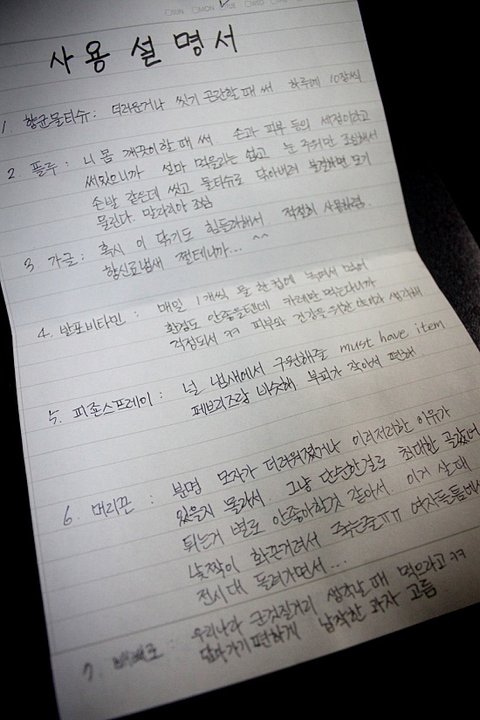 사용설명서
1. 항균물티슈 : 더러운거나 씻기 곤란할 때 써 하루에 10장씩
2. 플루 : 니 몸 깨끗이할 때 써 손과 피부 등의 세정이라고
써있으니까 설마 먹을라는 쉽고 눈 주위만 조심해서
손발 같은데 씻고 물티슈로 닦아버려 불결하면 모기
물린다. 말라리아 조심
3 가글 : 혹시 이 닦기도 힘든과해서 적절히 사용하렴.
향신료냄새 쩔테니까... ^^
4. 발포비타민 : 매일 1개씩 물 한컵에 녹여서 먹어
환경도 안좋을텐데 카레만 먹는다니까
걱정되서 ㅋㅋ 피부와 건강을 위한 생각해
5. 피죤스프레이 : 널 냄새에서 구원해줄 must have item
페브리즈랑 비슷해 부피가 작아서 편해
6. 머리끈 : 분명 모자가 더러워졌거나 이러저러한 이유가
있을지 몰라서. 그냥 단순한걸로 최대한 골랐어
튀는거 별로 안좋아할것 같아서. 이게 살 때
낯짝이 화끈거려서 죽는줄ㅠㅠ 여자들틈에서
전시대 돌려가면서...
7. 빼빼로 : 우리나라 군것질거리 생각날 때 먹으라고 ㅋㅋ
담아가기 편하게 납작한 과자 고름